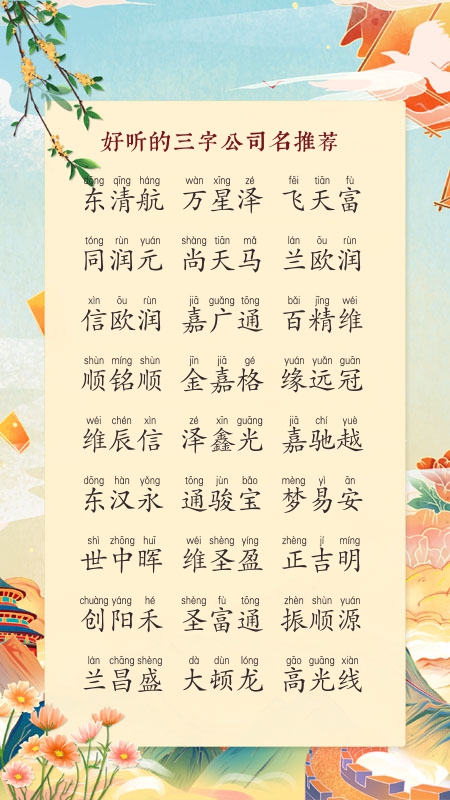 好听的三字公司名推荐
dōng qīng háng wàn xīng zé fēi tiān fù
东清航 万星泽 飞天富
tóng rùn yuán shàng tiān mǎ lán ōu rùn
同润元 尚天马 兰欧润
xìn ōu rùn jiā guǎng tōng bǎi jīng wéi
信欧润 嘉广通 百精维
shùn míng shùn jīn jiā gé yuán yuǎn guān
顺铭顺 金嘉格 缘远冠
wéi chén xìn zé xīn guāng jiā chí yuè
维辰信 泽鑫光 嘉驰越
dōng hàn yǒng tōng jùn bǎo mèng yì ān
东汉永 通骏宝 梦易安
shì zhōng huī wéi shèng yíng zhèng jí míng
世中晖 维圣盈 正吉明
chuàng yáng hé shèng fù tōng zhèn shùn yuán
创阳禾 圣富通 振顺源
lán chāng shèng dà dùn lóng gāo guāng xiàn
兰昌盛 大顿龙 高光线